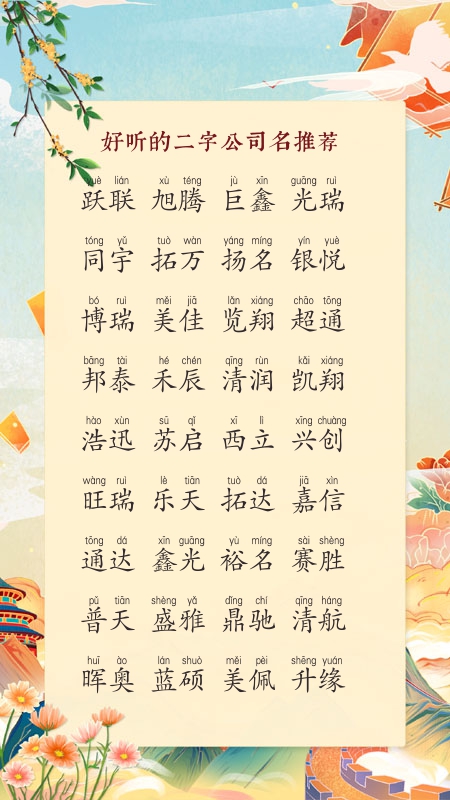 好听的二字公司名推荐
yuè lián xù téng jù xīn guāng ruì
跃联 旭腾 巨鑫 光瑞
tóng yǔ tuò wàn yáng míng yín yuè
同宇 拓万 扬名 银悦
bó ruì měi jiā lǎn xiáng chāo tōng
博瑞 美佳 览翔 超通
bāng tài hé chén qīng rùn kǎi xiáng
邦泰 禾辰 清润 凯翔
hào xùn sū qǐ xī lì xīng chuàng
浩迅 苏启 西立 兴创
wàng ruì lè tiān tuò dá jiā xìn
旺瑞 乐天 拓达 嘉信
tōng dá xīn guāng yù míng sài shèng
通达 鑫光 裕名 赛胜
pǔ tiān shèng yǎ dǐng chí qīng háng
普天 盛雅 鼎驰 清航
huī ào lán shuò měi pèi shēng yuán
晖奥 蓝硕 美佩 升缘